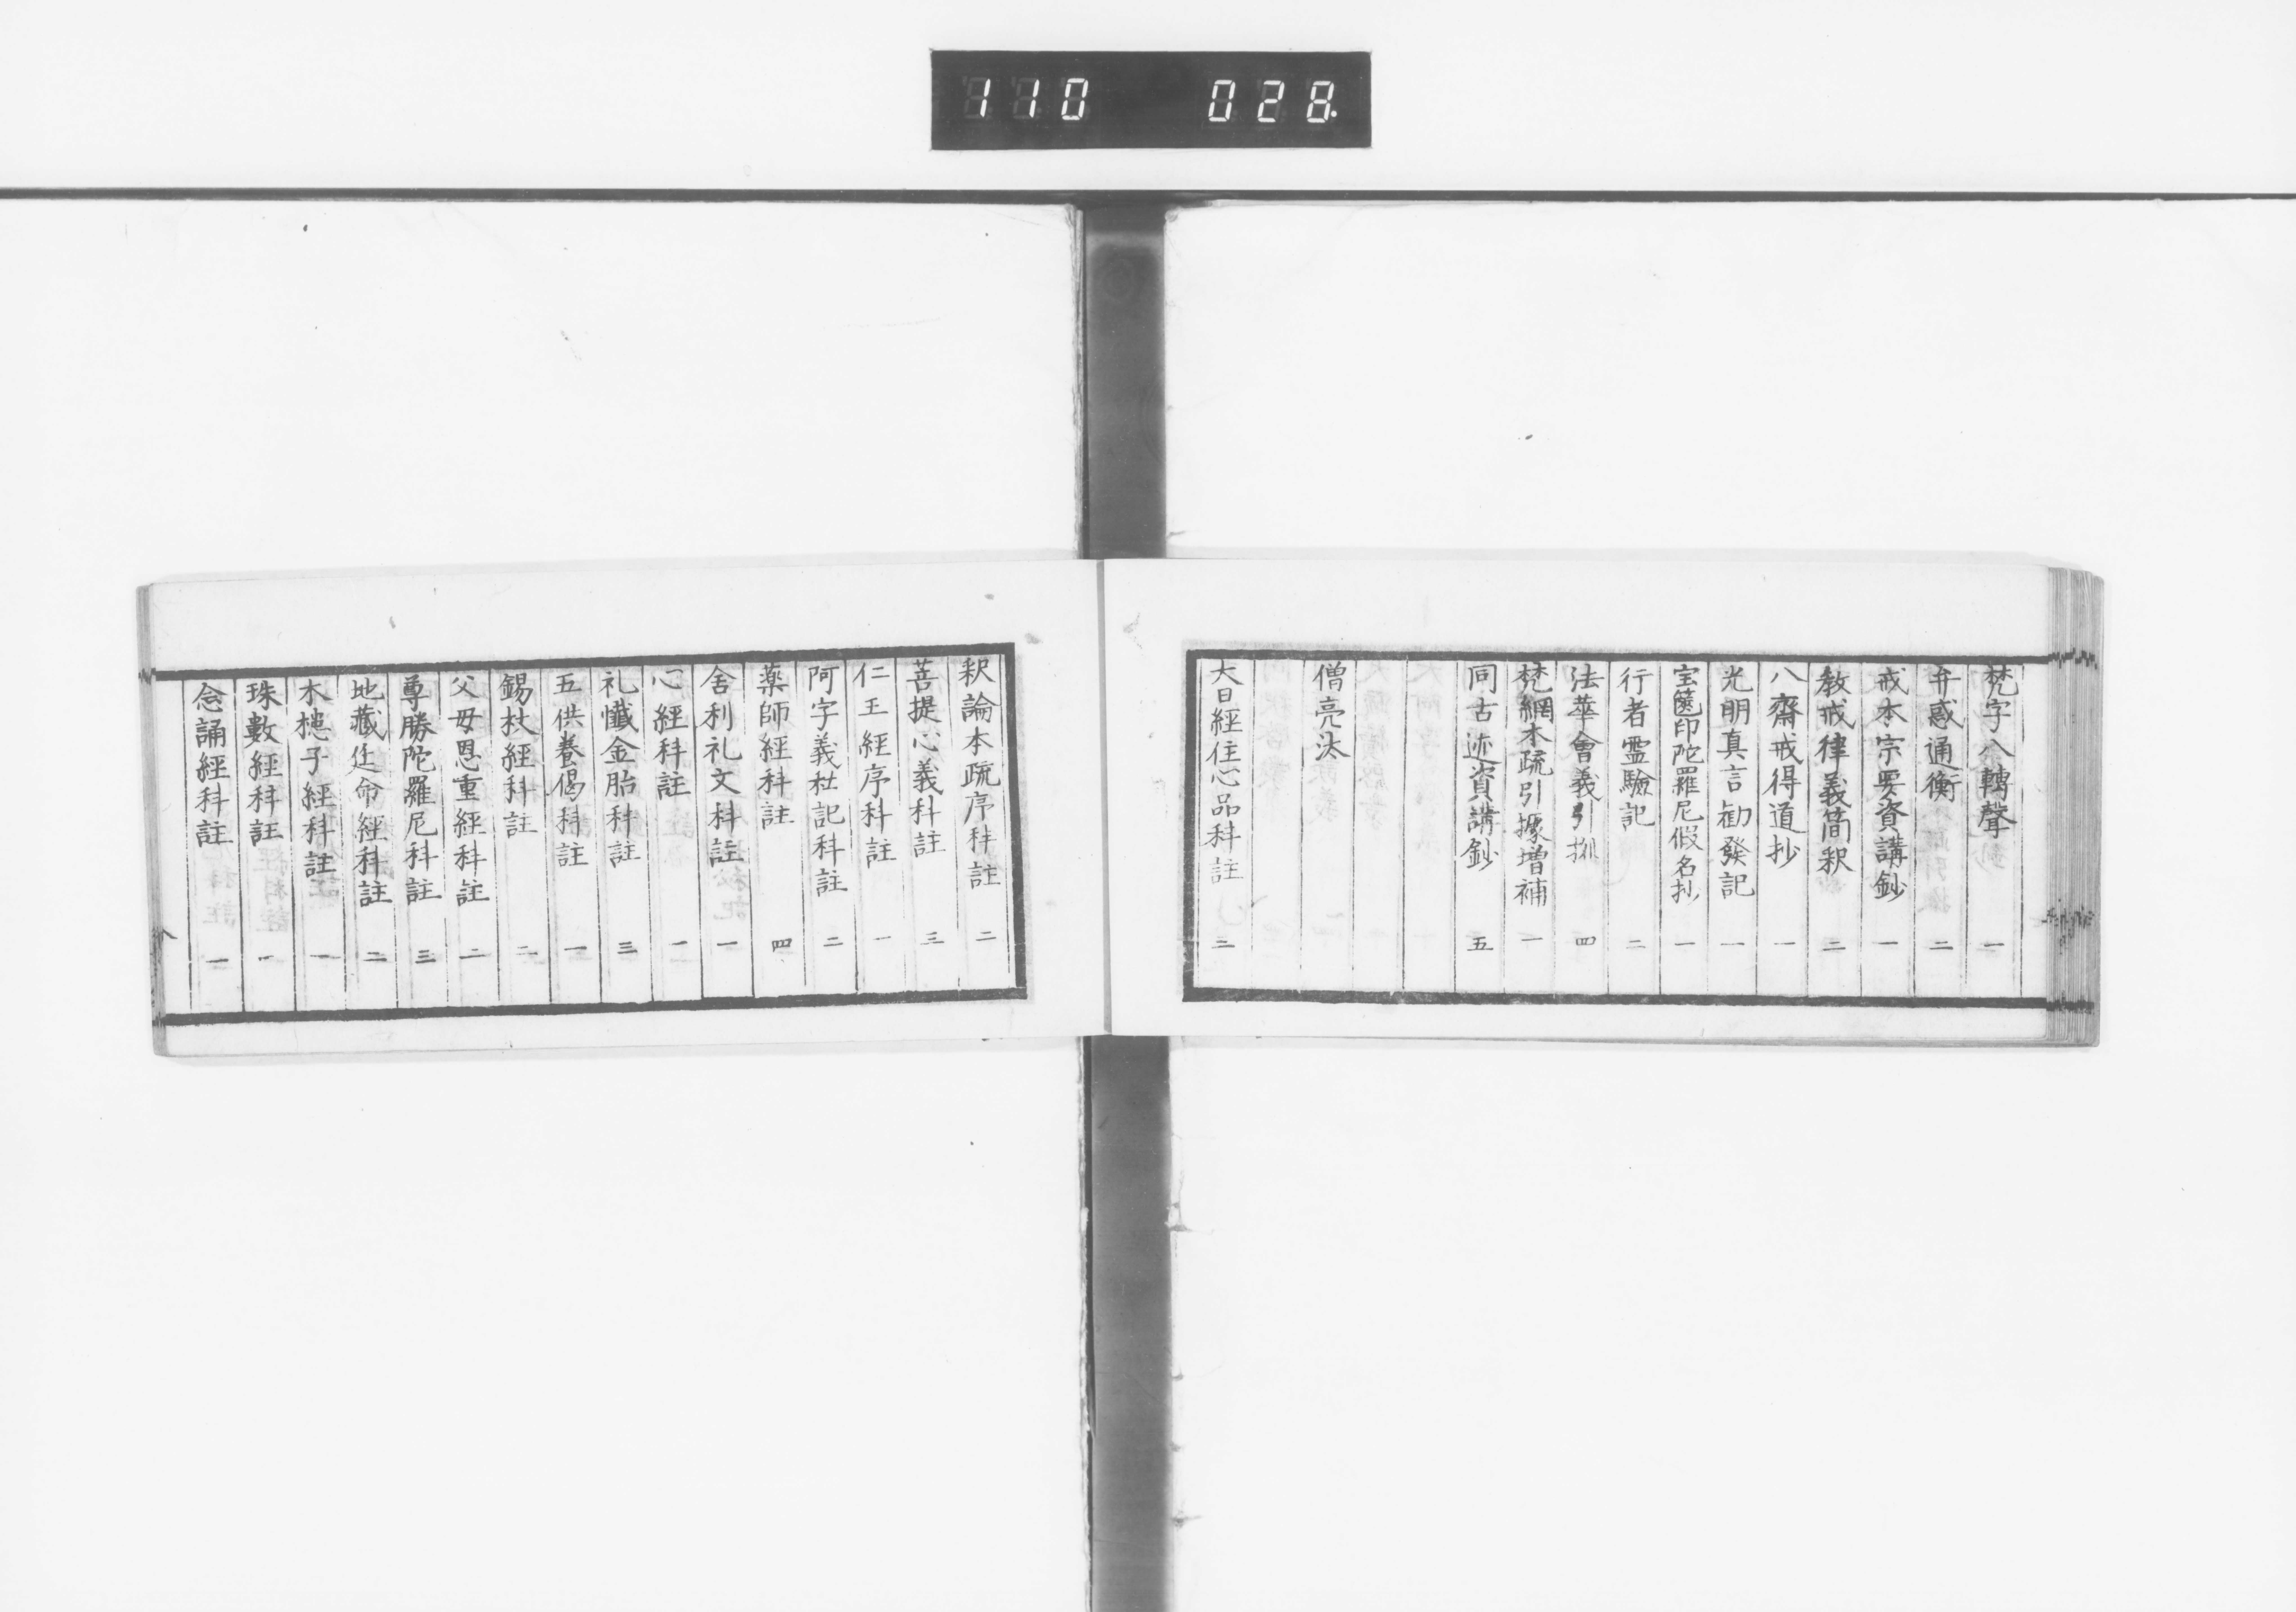 110 028.
梵字八轉聲 一
弁惑通衡 二
戒本宗要資講鈔 一
教戒律義簡釈 二
八齋戒得道抄 一
光明真言勧發記 一
宝篋印陀羅尼假名抄 一
行者霊驗記 二
法華會義引拠 四
梵網本疏引據増補 一
同古迹資講鈔 五
僧亮汰
大日經住心品科註 二
釈論本疏序科註 二
菩提心義科註 三
仁王經序科註 一
阿字義杜記科註 二
薬師經科註 四
舎利礼文科註 一
心經科註 一
礼懺金胎科註 三
五供養偈科註 一
錫杖經科註 二
父母恩重經科註 二
尊勝陀羅尼科註 三
地藏延命經科註 二
木槵子經科註 一
珠數經科註 一
念誦經科註 一